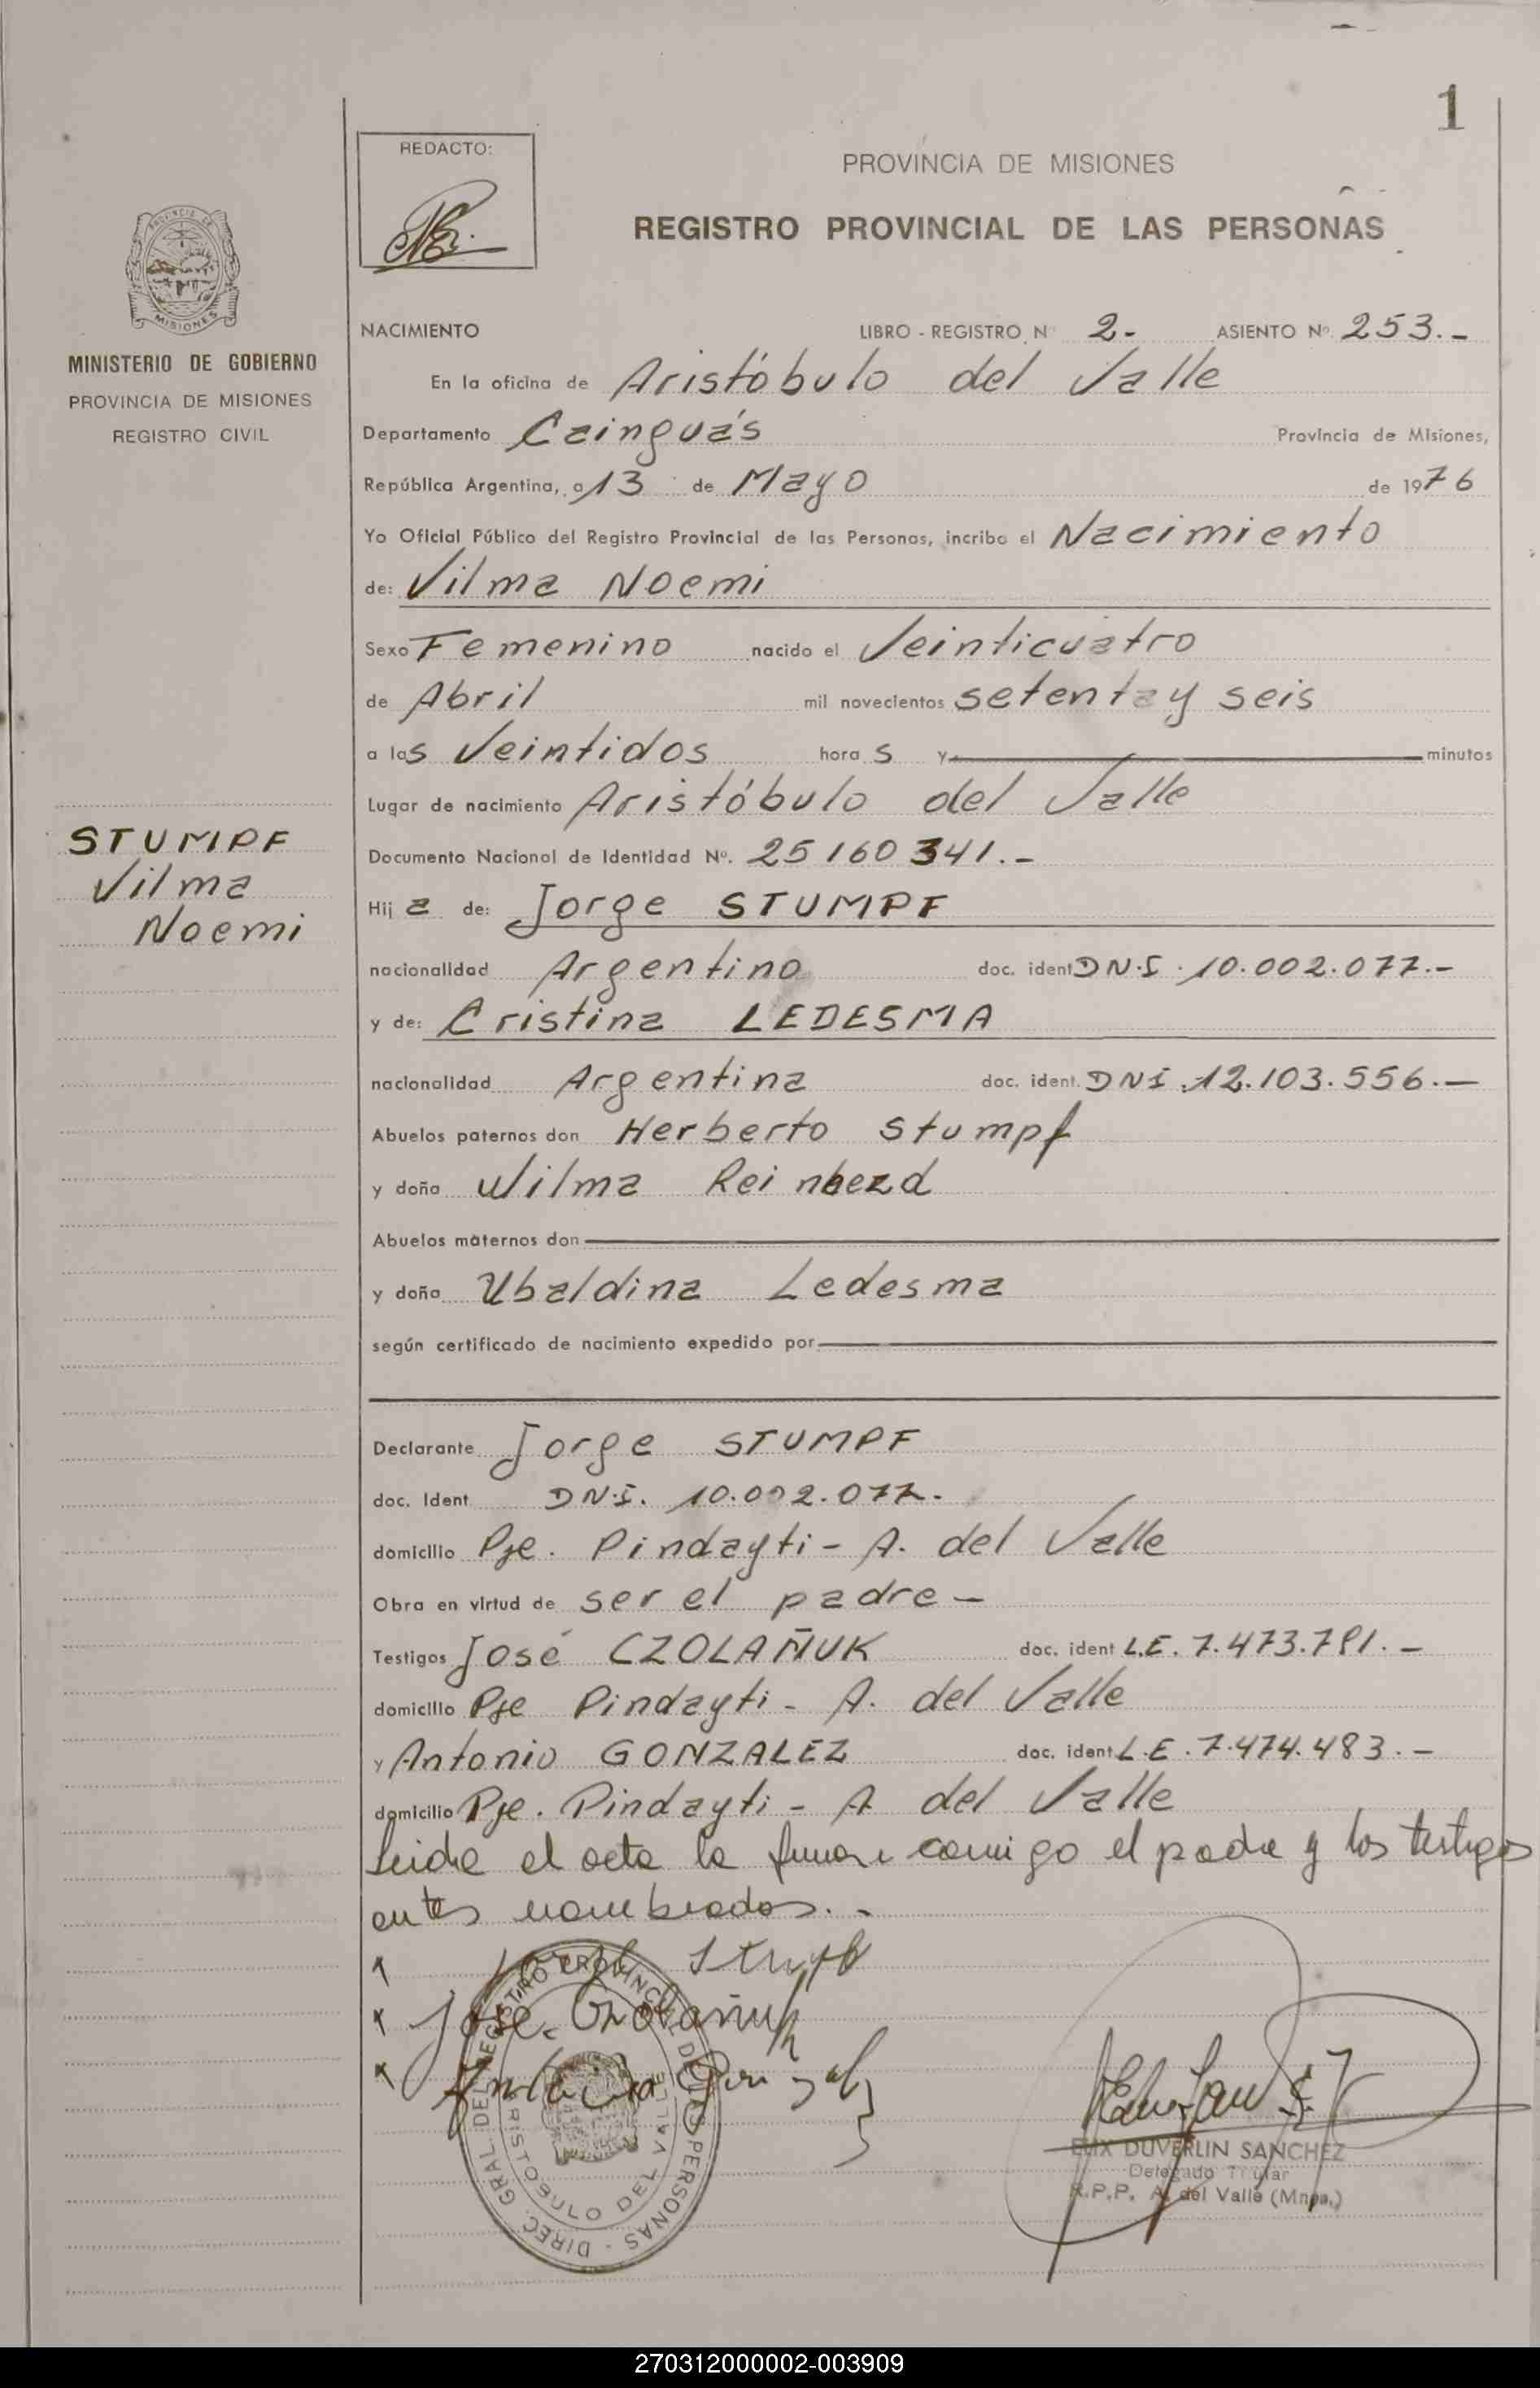 1
REDACTO:
PROVINCIA DE MISIONES
REGISTRO PROVINCIAL DE LAS PERSONAS
MISIONES
MINISTERIO DE GOBIERNO
PROVINCIA DE MISIONES
REGISTRO CIVIL
NACIMIENTO LIBRO - REGISTRO Nº 2.- ASIENTO Nº 253.-
En la oficina de Aristóbulo del Valle
Departamento Cainguás Provincia de Misiones,
República Argentina, a 13 de Mayo de 1976
Yo Oficial Público del Registro Provincial de las Personas, incribo el Nacimiento
de: Vilma Noemi
Sexo Femenino nacido el Veinticuatro
de Abril mil novecientos setenta y seis
a las Veintidos horas y minutos
Lugar de nacimiento Aristóbulo del Valle
Documento Nacional de Identidad Nº. 25160341.-
STUMPF
Vilma
Noemi
Hija de: Jorge STUMPF
nacionalidad Argentino doc. ident DN.I. 10.002.077.-
y de: Cristina LEDESMA
nacionalidad Argentina doc. ident. DNI. 12.103.556.-
Abuelos paternos don Herberto Stumpf
y doña Wilma
Abuelos maternos don
y doña Ubaldina Ledesma
según certificado de nacimiento expedido por
Declarante Jorge STUMPF
doc. Ident DN.I. 10.002.077.-
domicilio Pje. Pindayti - A. del Valle
Obra en virtud de ser el padre -
Testigos José CZOLAÑUK doc. ident L.E. 7.473.781.-
domicilio Pje Pindayti - A. del Valle
y Antonio GONZALEZ doc. ident L.E. 7.474.483.-
domicilio Pje. Pindayti - A del Valle
Leida el acta la firman comigo el padre y los testigos
antes nombrados.-
Jose
ELIX DUVERLIN SANCHEZ
Delegado Titular
R.P.P. A. del Valle (Mnes.)
DIREC. GRAL. DEL REGISTRO PROVINCIAL DE LAS PERSONAS -
ARISTOBULO DEL VALLE
270312000002-003909